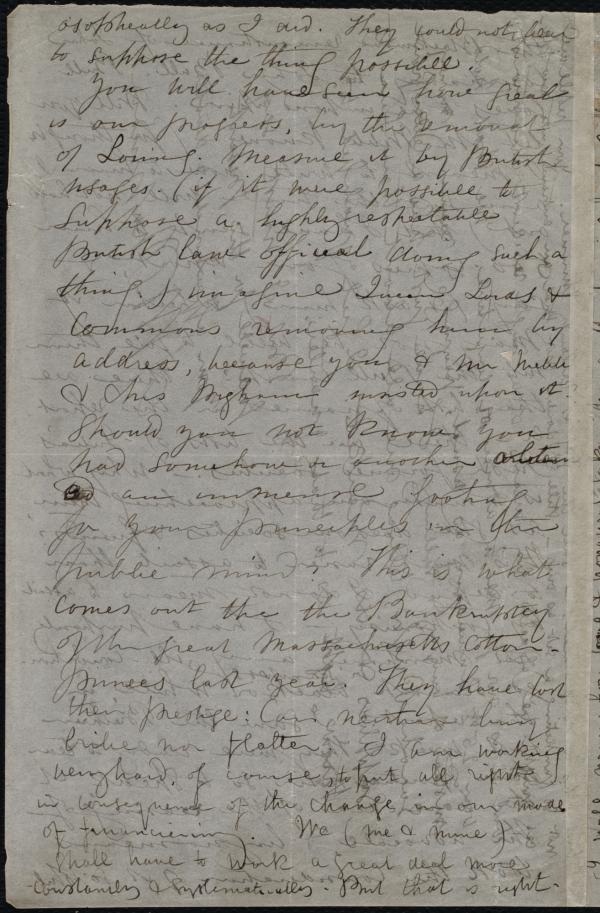 as I did. They could not bear
to suppose the thing possible.
You will have seen how great
is our progress, by the removal
of Loring. Measure it by British
usages. (if it were possible to
suppose a highly respectable
British law official doing such a
thing.) imagine Queen Lords &
Commons removing him by
address, because you & Mr Webb
& Mrs Brigham insisted upon it.
Should you not know you
had somehow or another
an immense footing
for your principles in the
public mind? This is what
comes out the the Bankruptcy
of the great Massachusetts cotton-
princes last year. They have lost
their prestige: can neither buy
bribe nor flatter. I am working
very hard, of course, to put all right
in consequence of the change in our mode
of financiering. We (me & mine)
shall have to work a great deal more
constantly & systematically. But that is right.